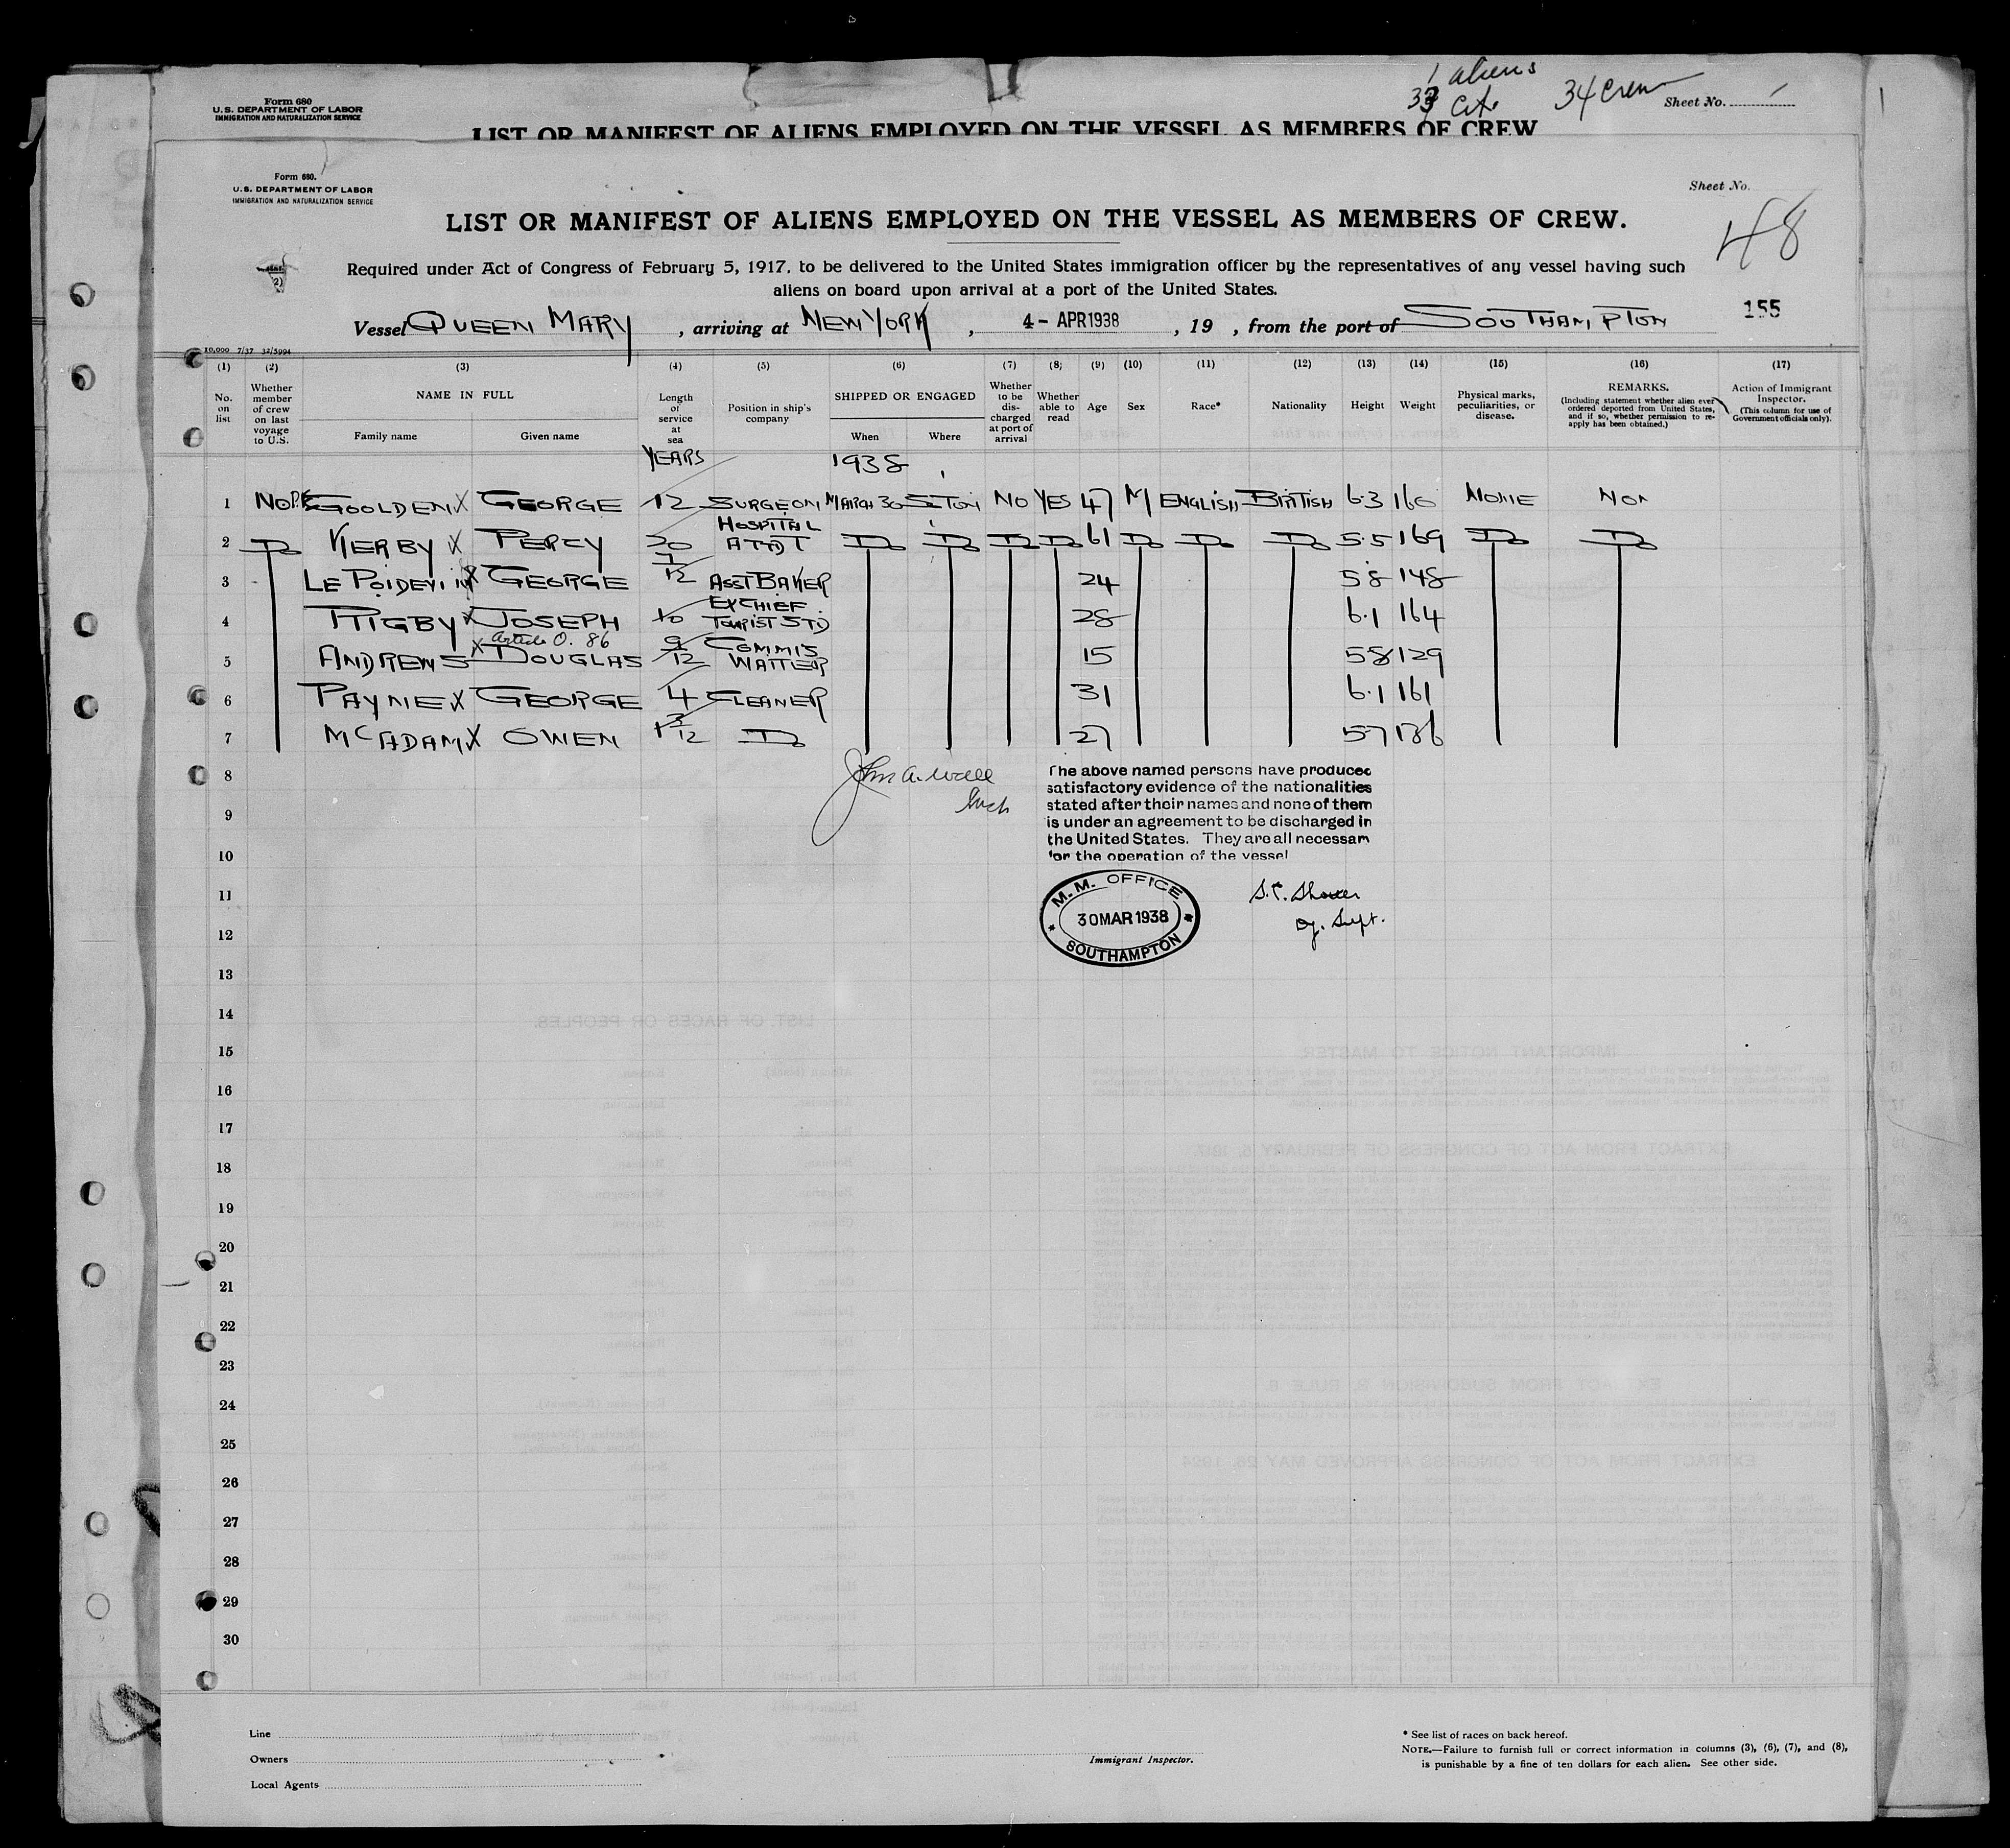 1 aliens
33 Cit. 34 crew
Form 680
U.S. DEPARTMENT OF LABOR
IMMIGRATION AND NATURALIZATION SERVICE
Sheet No.
LIST OR MANIFEST OF ALIENS EMPLOYED ON THE VESSEL AS MEMBERS OF CREW
Form 680.
U.S. DEPARTMENT OF LABOR
IMMIGRATION AND NATURALIZATION SERVICE
Sheet No.
48
LIST OR MANIFEST OF ALIENS EMPLOYED ON THE VESSEL AS MEMBERS OF CREW.
Required under Act of Congress of February 5, 1917, to be delivered to the United States immigration officer by the representatives of any vessel having such
aliens on board upon arrival at a port of the United States.
Vessel QUEEN MARY, arriving at NEW YORK, 4- APR 1938, 19 , from the port of SOUTHAMPTON 155
10,000 7/37 32/5994
(1) (2) (3) (4) (5) (6) (7) (8) (9) (10) (11) (12) (13) (14) (15) (16) (17)
No. on list
Whether member of crew on last voyage to U.S.
NAME IN FULL
Family name Given name
Length of service at sea
Position in ship's company
SHIPPED OR ENGAGED
When Where
Whether to be discharged at port of arrival
Whether able to read
Age Sex Race* Nationality Height Weight
Physical marks, peculiarities, or disease.
REMARKS.
(Including statement whether alien ever ordered deported from United States, and if so, whether permission to re-apply has been obtained.)
Action of Immigrant Inspector.
(This column for use of Government officials only).
YEARS 1938
1 NO GOOLDEN X GEORGE 12 SURGEON MARCH 30 S'TON NO YES 47 M ENGLISH BRITISH 6.3 160 NONE NON
2 Do KERBY X PERCY 30 HOSPITAL ATTDT Do Do Do Do 61 Do Do Do 5.5 169 Do Do
3 LE POIDEVIN X GEORGE 7/12 ASST BAKER 24 5.8 148
4 RIGBY X JOSEPH 10 EX CHIEF TOURIST STD 28 6.1 164
Article O. 86
5 ANDREWS X DOUGLAS 9/12 COMMIS WAITER 15 5.8 129
6 PAYNE X GEORGE 4 CLEANER 31 6.1 161
7 MCADAM X OWEN 1 3/12 Do 27 5.7 136
8 John A. Wall
9
10
The above named persons have produced
satisfactory evidence of the nationalities
stated after their names and none of them
is under an agreement to be discharged in
the United States. They are all necessary
for the operation of the vessel
11
12
M.M. OFFICE
30 MAR 1938
SOUTHAMPTON
Supt.
13
14
15
16
17
18
19
20
21
22
23
24
25
26
27
28
29
30
Line
Owners
Local Agents
Immigrant Inspector.
* See list of races on back hereof.
NOTE.—Failure to furnish full or correct information in columns (3), (6), (7), and (8),
is punishable by a fine of ten dollars for each alien. See other side.